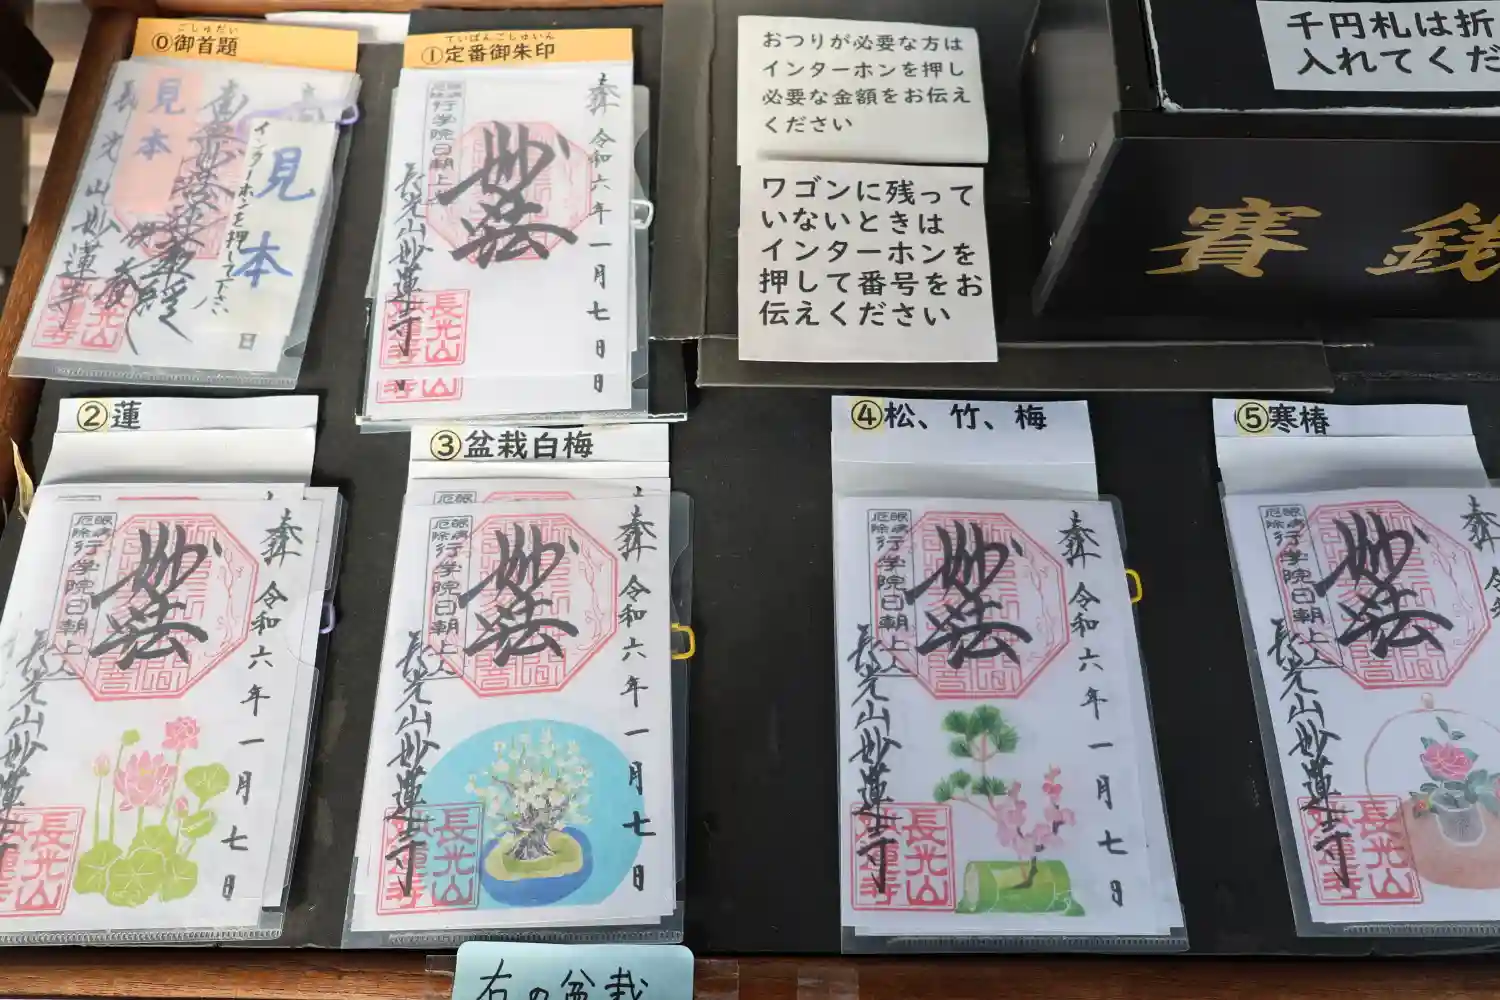 ごしゅだい
⓪御首題
見本
長光山妙蓮寺
見本
インターホンを押して下さい
日
ていばんごしゅいん
①定番御朱印
奉
令和六年一月七日
妙法
行学院日朝上人
長光山妙蓮寺
長光山
妙蓮寺
おつりが必要な方は
インターホンを押し
必要な金額をお伝え
ください
ワゴンに残って
いないときは
インターホンを
押して番号をお
伝えください
千円札は折
入れてくだ
賽銭
②蓮
奉
令和六年一月七日
妙法
眼病
厄除
行学院日朝上人
長光山妙蓮寺
長光山
妙蓮寺
③盆栽白梅
奉
令和六年一月七日
妙法
眼病
厄除
行学院日朝上人
長光山妙蓮寺
長光山
妙蓮寺
④松、竹、梅
奉
令和六年一月七日
妙法
眼病
厄除
行学院日朝上人
長光山妙蓮寺
長光山
妙蓮寺
⑤寒椿
奉
妙法
眼病
厄除
行学院日朝上人
長光山妙蓮寺
長光山
妙蓮寺
右の盆栽